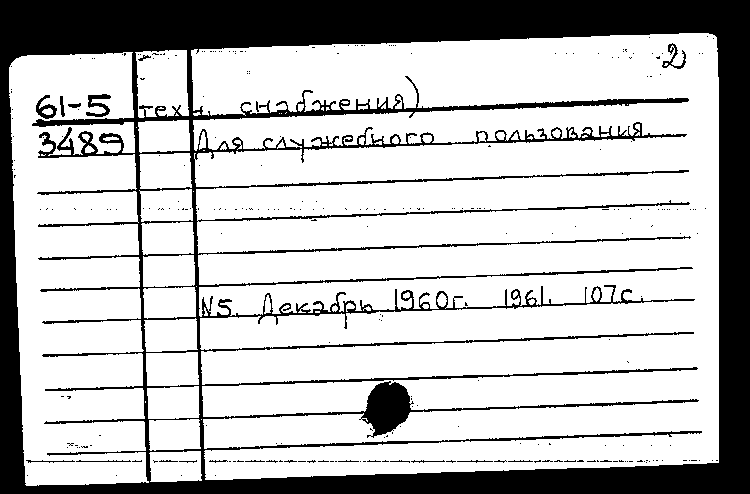 2
61-5 техн. снабжения)
3489 Для служебного пользования.
N5. Декабрь 1960г. 1961. 107с.